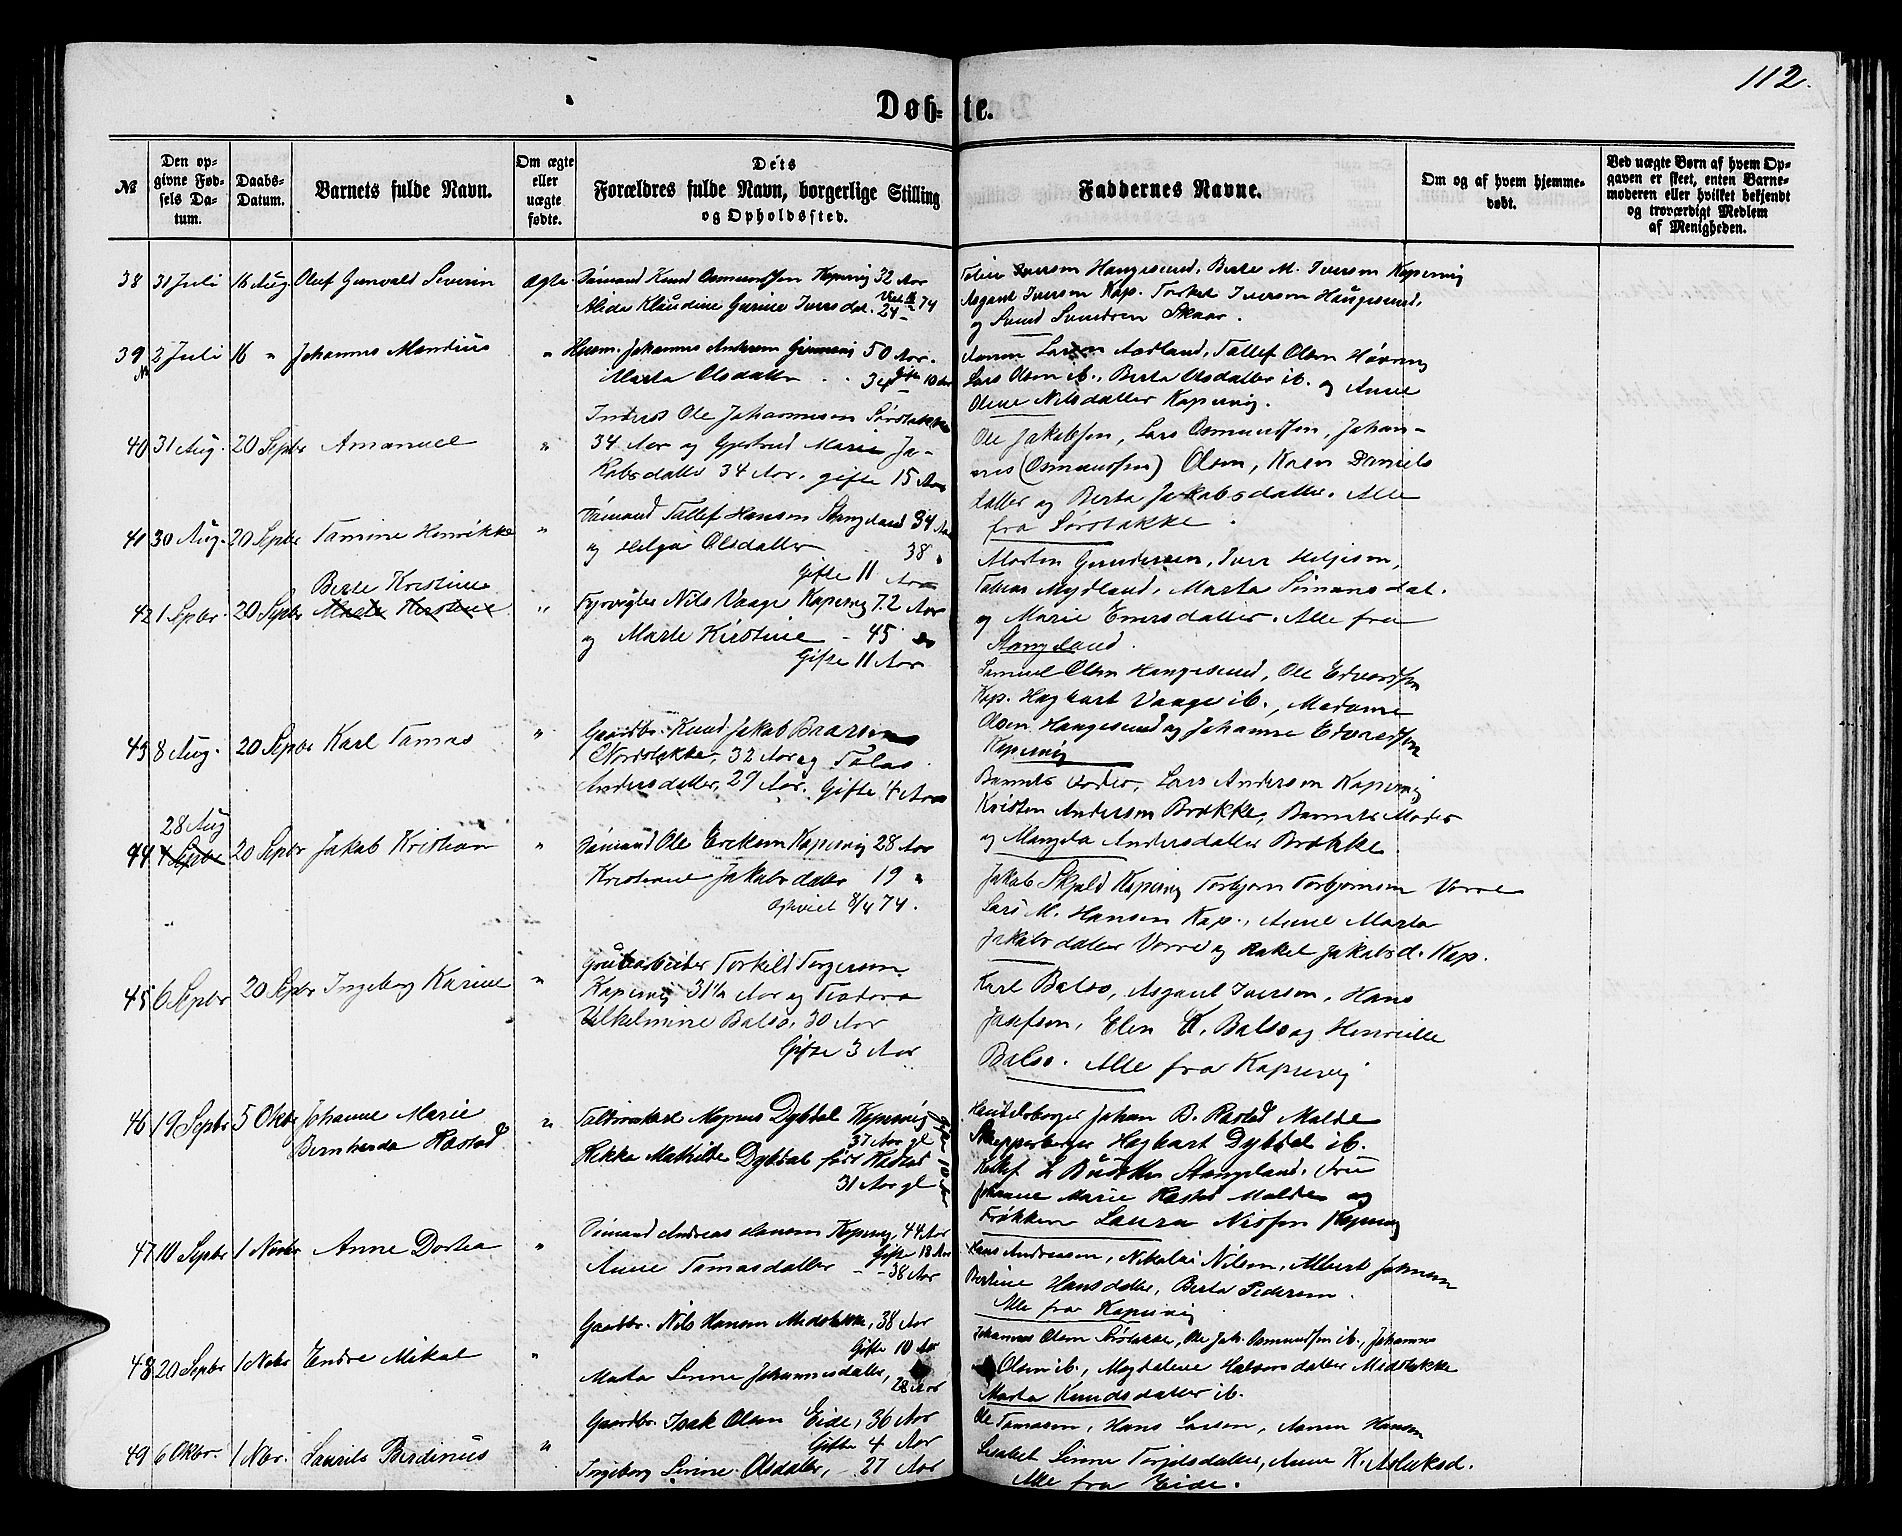 112.
Døb-te.
№
Den opgivne Fødsels Datum.
Daabs-Datum.
Barnets fulde Navn.
Om ægte eller uægte fødte.
Dets Forældres fulde Navn, borgerlige Stilling og Opholdssted.
Faddernes Navne.
Om og af hvem hjemmedøbt.
Ved uægte Børn af hvem Opgaven er skeet, enten Barnemoderen eller hvilket bekjendt og troværdigt Medlem af Menigheden.
38 31 Juli 16 Aug Oluf Gunvald Severin Ægte Sømand Knud Osmundsen Kopervig 32 Aar
Alida Klaudine Gurine Iversdat. 24
Iversen Haugesund, Berte M. Iversen Kopervig
Asgaut Iversen Kop. Torkel Iversen Haugesund,
og Svend Svendsen Skaar.
39 2 Juli 16 " Johannes Mandius " Husm. Johannes Andersen 50 Aar.
Marta Olsdatter 34 Gifte 10 Aar
Aanen Larsen Aadland, Tallef Olsen
Lars Olsen ib., Berta Olsdatter ib. og Anne
Oline Nilsdatter Kopervig.
40 31 Aug. 20 Sepbr Amanuel " Inderst Ole Johannesen Sørstokke
34 Aar og Gjertrud Marie Ja-
kobsdatter 34 Aar. gifte 15 Aar
Ole Jakobsen, Lars Osmundsen, Johan-
nes (Osmundsen) Olsen, Karen Daniels
datter og Berta Jakobsdatter. Alle
fra Sørstokke.
41 30 Aug. 20 Sepbr Tamine Henrikke " Sømand Tallef Hansen Stangeland 34 Aar
og Helga Olsdatter 38 "
Gifte 11 Aar
Morten Gundersen, Iver Helgesen,
Tobias Mydland, Marta Simonsdat.
og Marie Enersdatter. Alle fra
Stangeland.
42 1 Sepbr. 20 Sepbr Berte Kristine
Marte Kirstine " Fyrvogter Nils Vaage Kopervig 72 Aar
og Marte Kirstine - 45 do
Gifte 11 Aar
Samuel Olsen Haugesund, Ole Edvardsen
Kop. Hagbart Vaage ib., Madame
Olsen Haugesund og Johanne Edvardsen
Kopervig
43 8 Aug. 20 Sepbr Karl Tomas " Gaardbr. Knud Jakob Baarsen
Nordstokke, 32 Aar og Talas
Andersdatter, 27 Aar. Gifte 4 Aar
Barnets Fader, Lars Andersen Kopervig
Kristen Andersen Brække, Barnets Moder
og Mangela Andersdatter Brække.
44 28 Aug
4 Sepbr 20 Sepbr Jakob Kristian " Sømand Ole Eriksen Kopervig 28 Aar
Kristiane Jakobsdatter 19 "
8/4 74.
Jakob Skjold Kopervig Torbjørn Torbjørnsen Vorre
Lars M. Hansen Kop., Anne Marta
Jakobsdatter Vorre og Rakel Jakobsd. Kop.
45 6 Sepbr 20 Sepbr Ingeborg Karine " Torkild Torgersen
Kopervig 31 1/2 Aar og Teodora
Vilhelmine Balso, 30 Aar
Gifte 3 Aar
Karl Balso, Asgaut Iversen, Hans
Josefsen, Elen K. Balso og Henriette
Balso. Alle fra Kopervig
46 19 Sepbr 5 Oktbr Johanne Marie
Bernharda Rasted " Magnus Dybdal Kopervig
37 Aar gl
Rikka Mathilde Dybdal født Rasted
31 Aar gl Gifte 10 Aar
Handelsborger Johan B. Rasted Molde
Skipperborger Hagbart Dybdal ib.
Stangeland. Frue
Johanne Marie Rasted Molde og
Frøkken Laura Nissen Kopervig
47 10 Sepbr 1 Novbr Anne Dortea " Sømand Andreas Hansen Kopervig, 44 Aar
Gifte 18 Aar
Anne Tomasdatter - - 38 Aar
Hans Andreasen, Nikolai Nilsen, Albert Johnsen
Bertine Hansdatter, Berta Pedersen.
Alle fra Kopervig
48 20 Sepbr 1 Nobr Endre Mikal " Gaardbr. Nils Hansen Midstokke, 38 Aar
Gifte 10 Aar
Marta Serine Johannesdatter, 28 Aar
Johannes Olsen Sørstokke, Ole Jak. Osmundsen ib., Johannes
Olsen ib., Magdalene Halvorsdatter Midstokke
Marta Knudsdatter ib.
49 6 Oktbr. 1 Nbr. Laurits Berdinius " Gaardbr. Isak Olsen Eide, 36 Aar
Gifte 4 Aar
Ingeborg Serine Olsdatter, 27 Aar
Ole Tomasen, Hans Larsen, Aanen Hansen
Lisabet Serine Torjilsdatter, Anne K. Aslaksd.
Alle fra Eide.